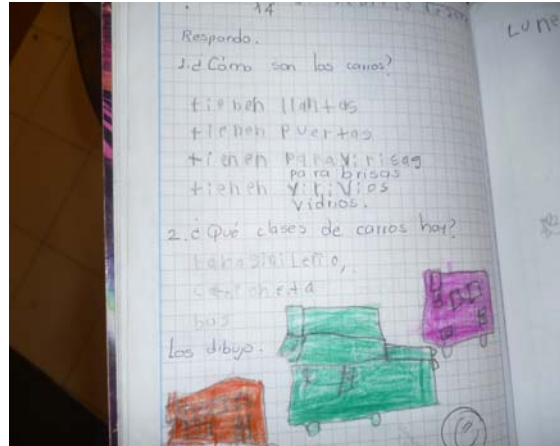 14
Respondo.
1. ¿Cómo son los carros?
tienen llantas
tienen puertas
tienen paravirisas
para brisas
tienen virivios
vidrios.
2. ¿Qué clases de carros hay?
bus
Los dibujo.
Lune